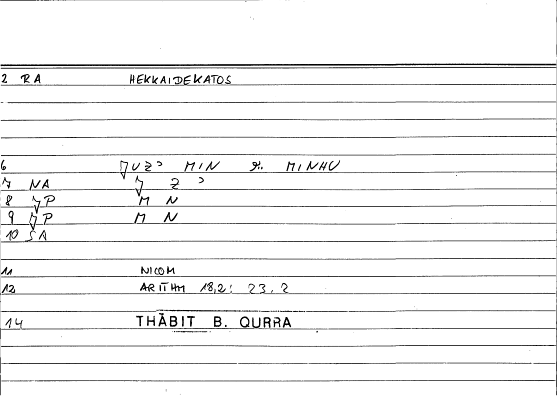 2 RA HEKKAIDEKATOS
6 ǦUZʾ MIN MINHU
7 NA Ǧ Z ʾ
8 ǦP M N
9 ǦP M N
10 SA
11 NICOM
12 ARITHM 18,2: 23.2
14 THĀBIT B. QURRA